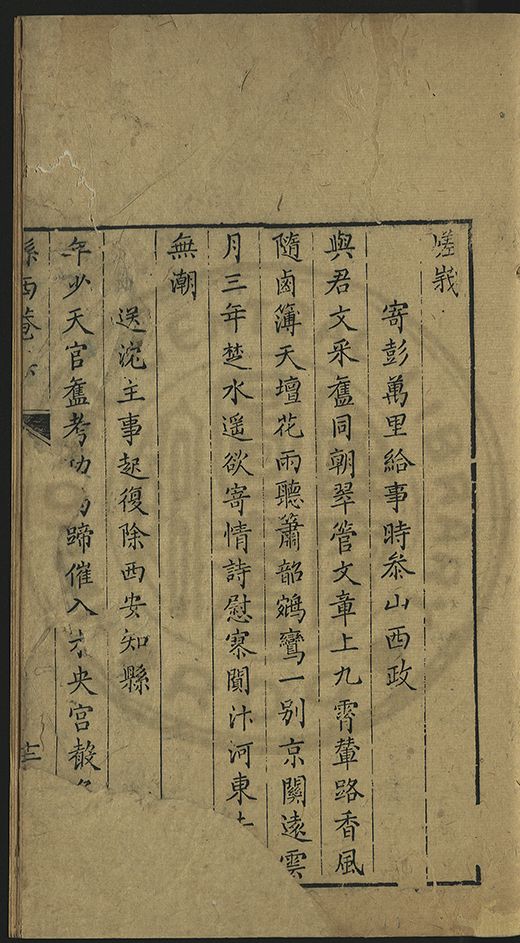 嵯峩
寄彭萬里給事時叅山西政
與君文采舊同朝翠管文章上九霄輦路香風
隨鹵簿天壇花雨聽簫韶鵷鸞一別京關遠雲
月三年楚水遥欲寄情詩慰寥闃汴河東
無潮
送沈主事起復除西安知縣
年少天官舊考功蹄催入未央宮
西菴
十二